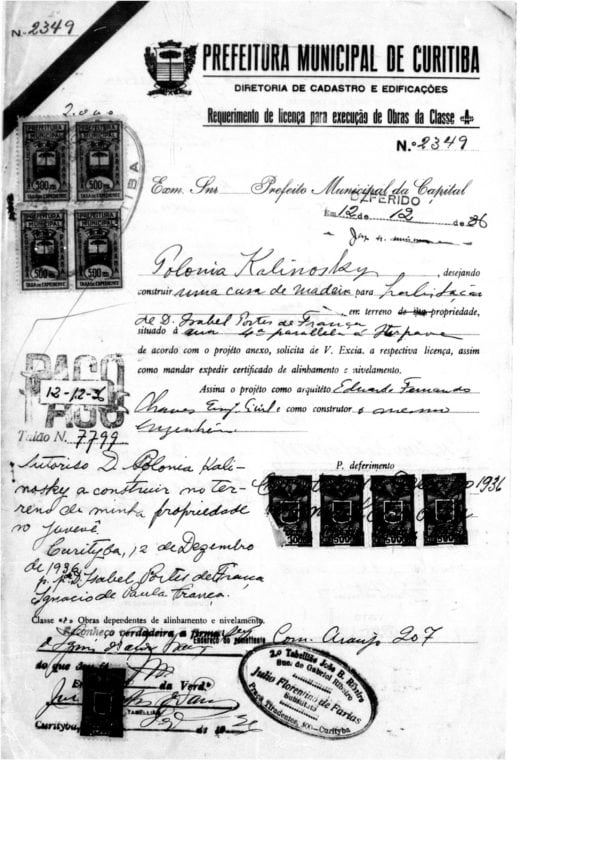 N. 2349
PREFEITURA MUNICIPAL DE CURITIBA
DIRETORIA DE CADASTRO E EDIFICAÇÕES
Requerimento de licença para execução de Obras da Classe «A»
N.º 2349
Exm. Snr. Prefeito Municipal da Capital
DEFERIDO
Em 12 de 12 de 36
PREFEITURA MUNICIPAL
500 RS
TAXA DE EXPEDIENTE
PREFEITURA MUNICIPAL
500 RS
TAXA DE EXPEDIENTE
PREFEITURA MUNICIPAL
500 RS
TAXA DE EXPEDIENTE
PREFEITURA MUNICIPAL
500 RS
TAXA DE EXPEDIENTE
Polonia Kalinosky, desejando
construir uma casa de madeira para habitação
em terreno de sua propriedade,
de D. Isabel Portes de França
situado à rua 4ª parallela à
de acordo com o projéto anexo, solicita de V. Excia. a respectiva licença, assim
como mandar expedir certificado de alinhamento e nivelamento.
Assina o projéto como arquitéto Eduardo Fernando
Chaves Eng. Civil e como construtor o mesmo
engenheiro.
PAGO
12-12-36
Talão N. 7799
P. deferimento
1936
Autoriso D. Polonia Kali-
nosky a construir no ter-
reno de minha propriedade
no Juvevê
Curityba, 12 de Dezembro
de 1936
p.p. D. Isabel Portes de França
Ignacio de Paula França.
Classe «A» Obras dependentes de alinhamento e nivelamento.
Reconheço verdadeira a firma
Endereço do
Com. Araujo 207
do que
da Verd.e
TABELLIÃO
Curityba,
2.º Tabellião João B. Ribeiro
Rua de Gabriel Ribeiro
Julio Florentino de Farias
Substituto
Praça Tiradentes, Curityba